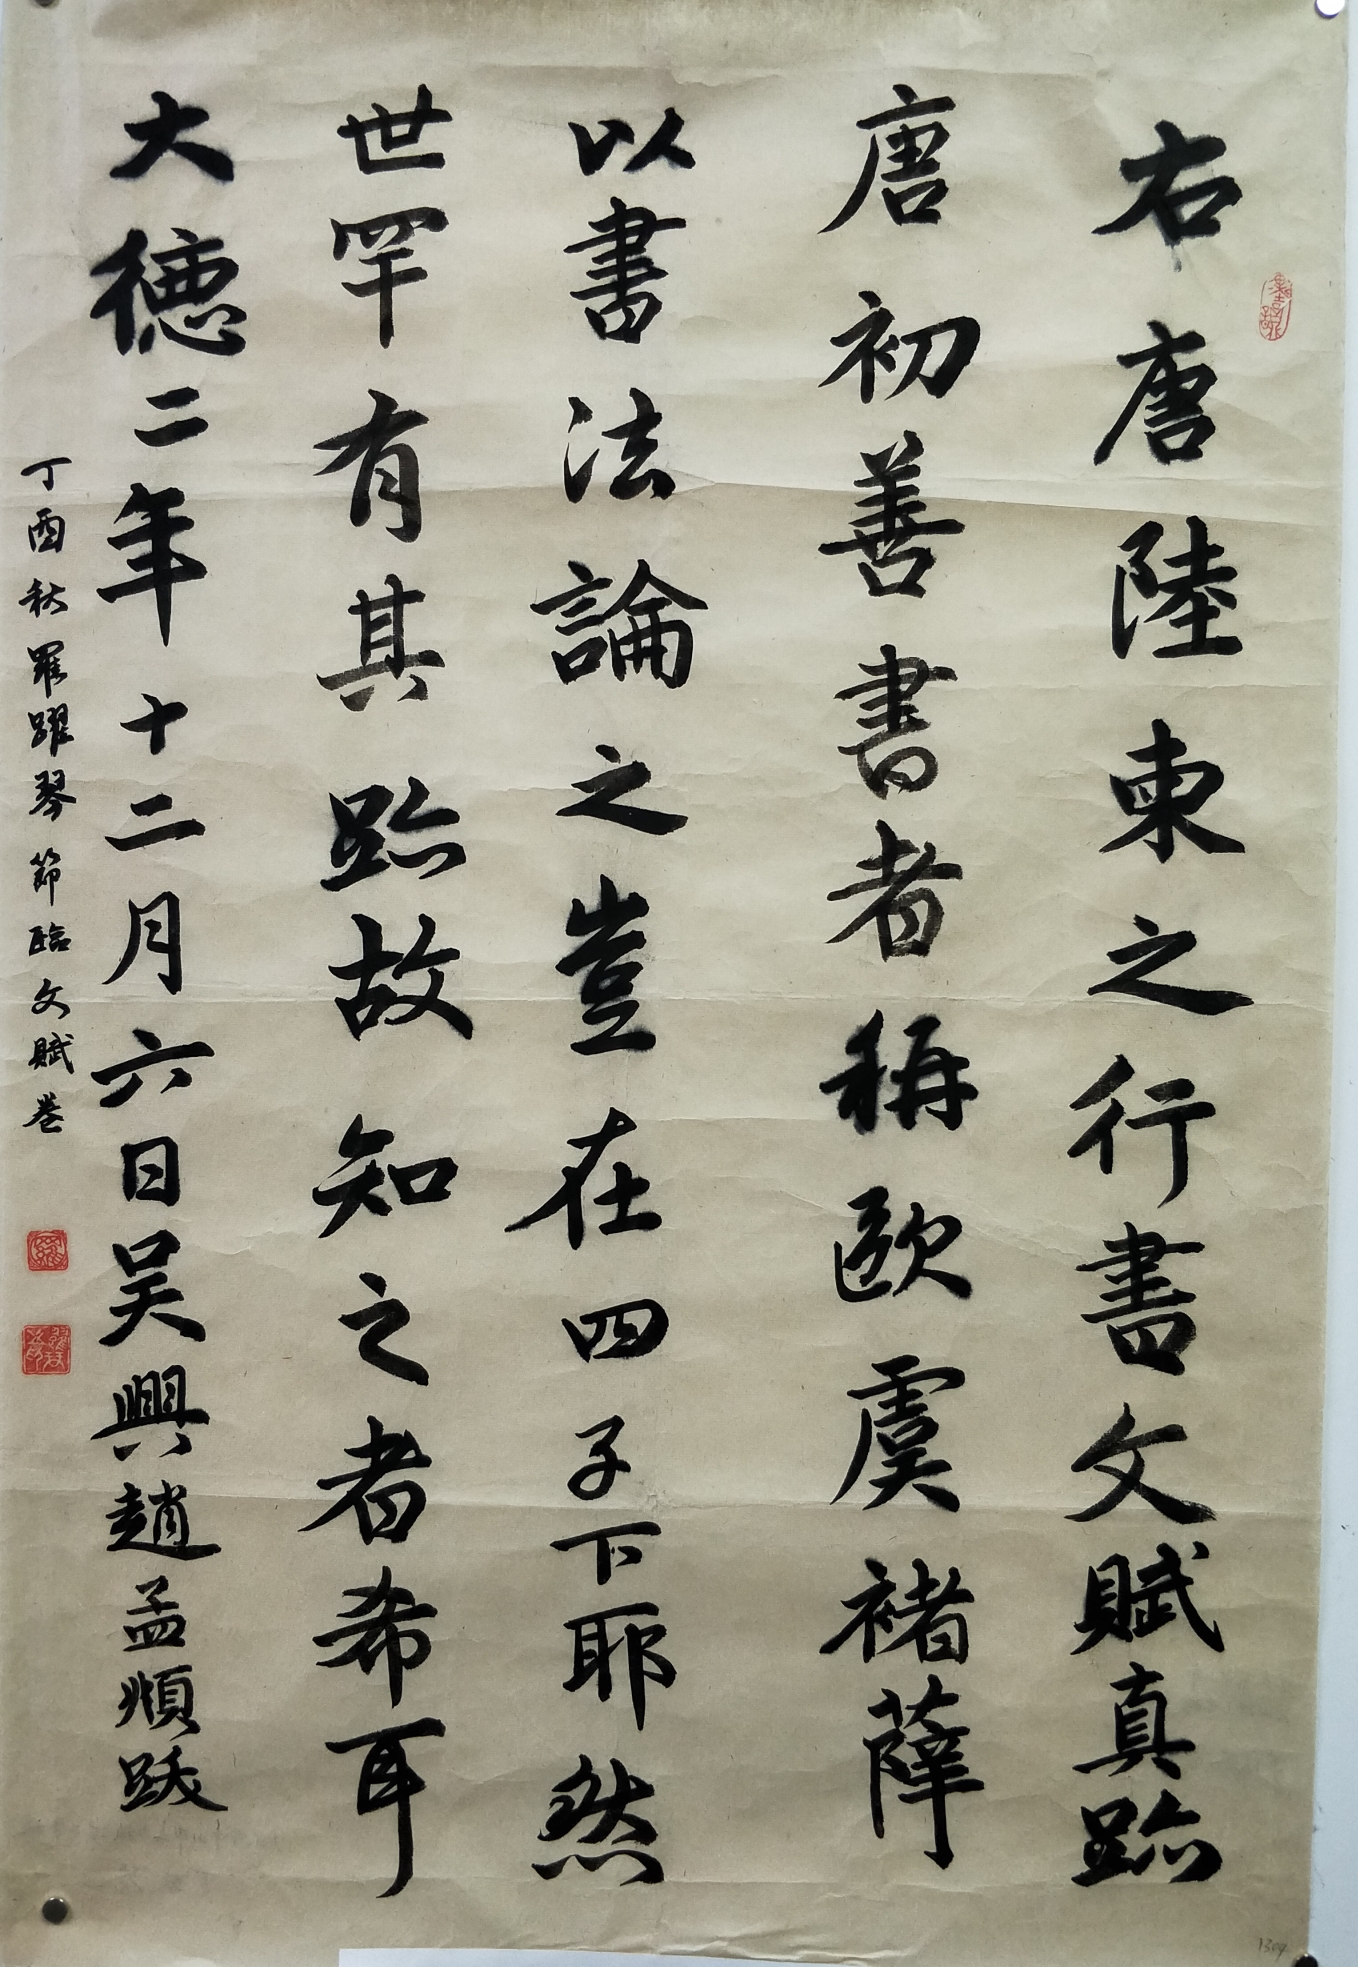 右唐陸柬之行書文賦真跡
唐初善書者稱歐虞褚薛
以書法論之豈在四子下耶然
世罕有其跡故知之者希耳
大德二年十二月六日吴興趙孟頫跋
丁酉秋羅躍琴節臨文賦卷
1304